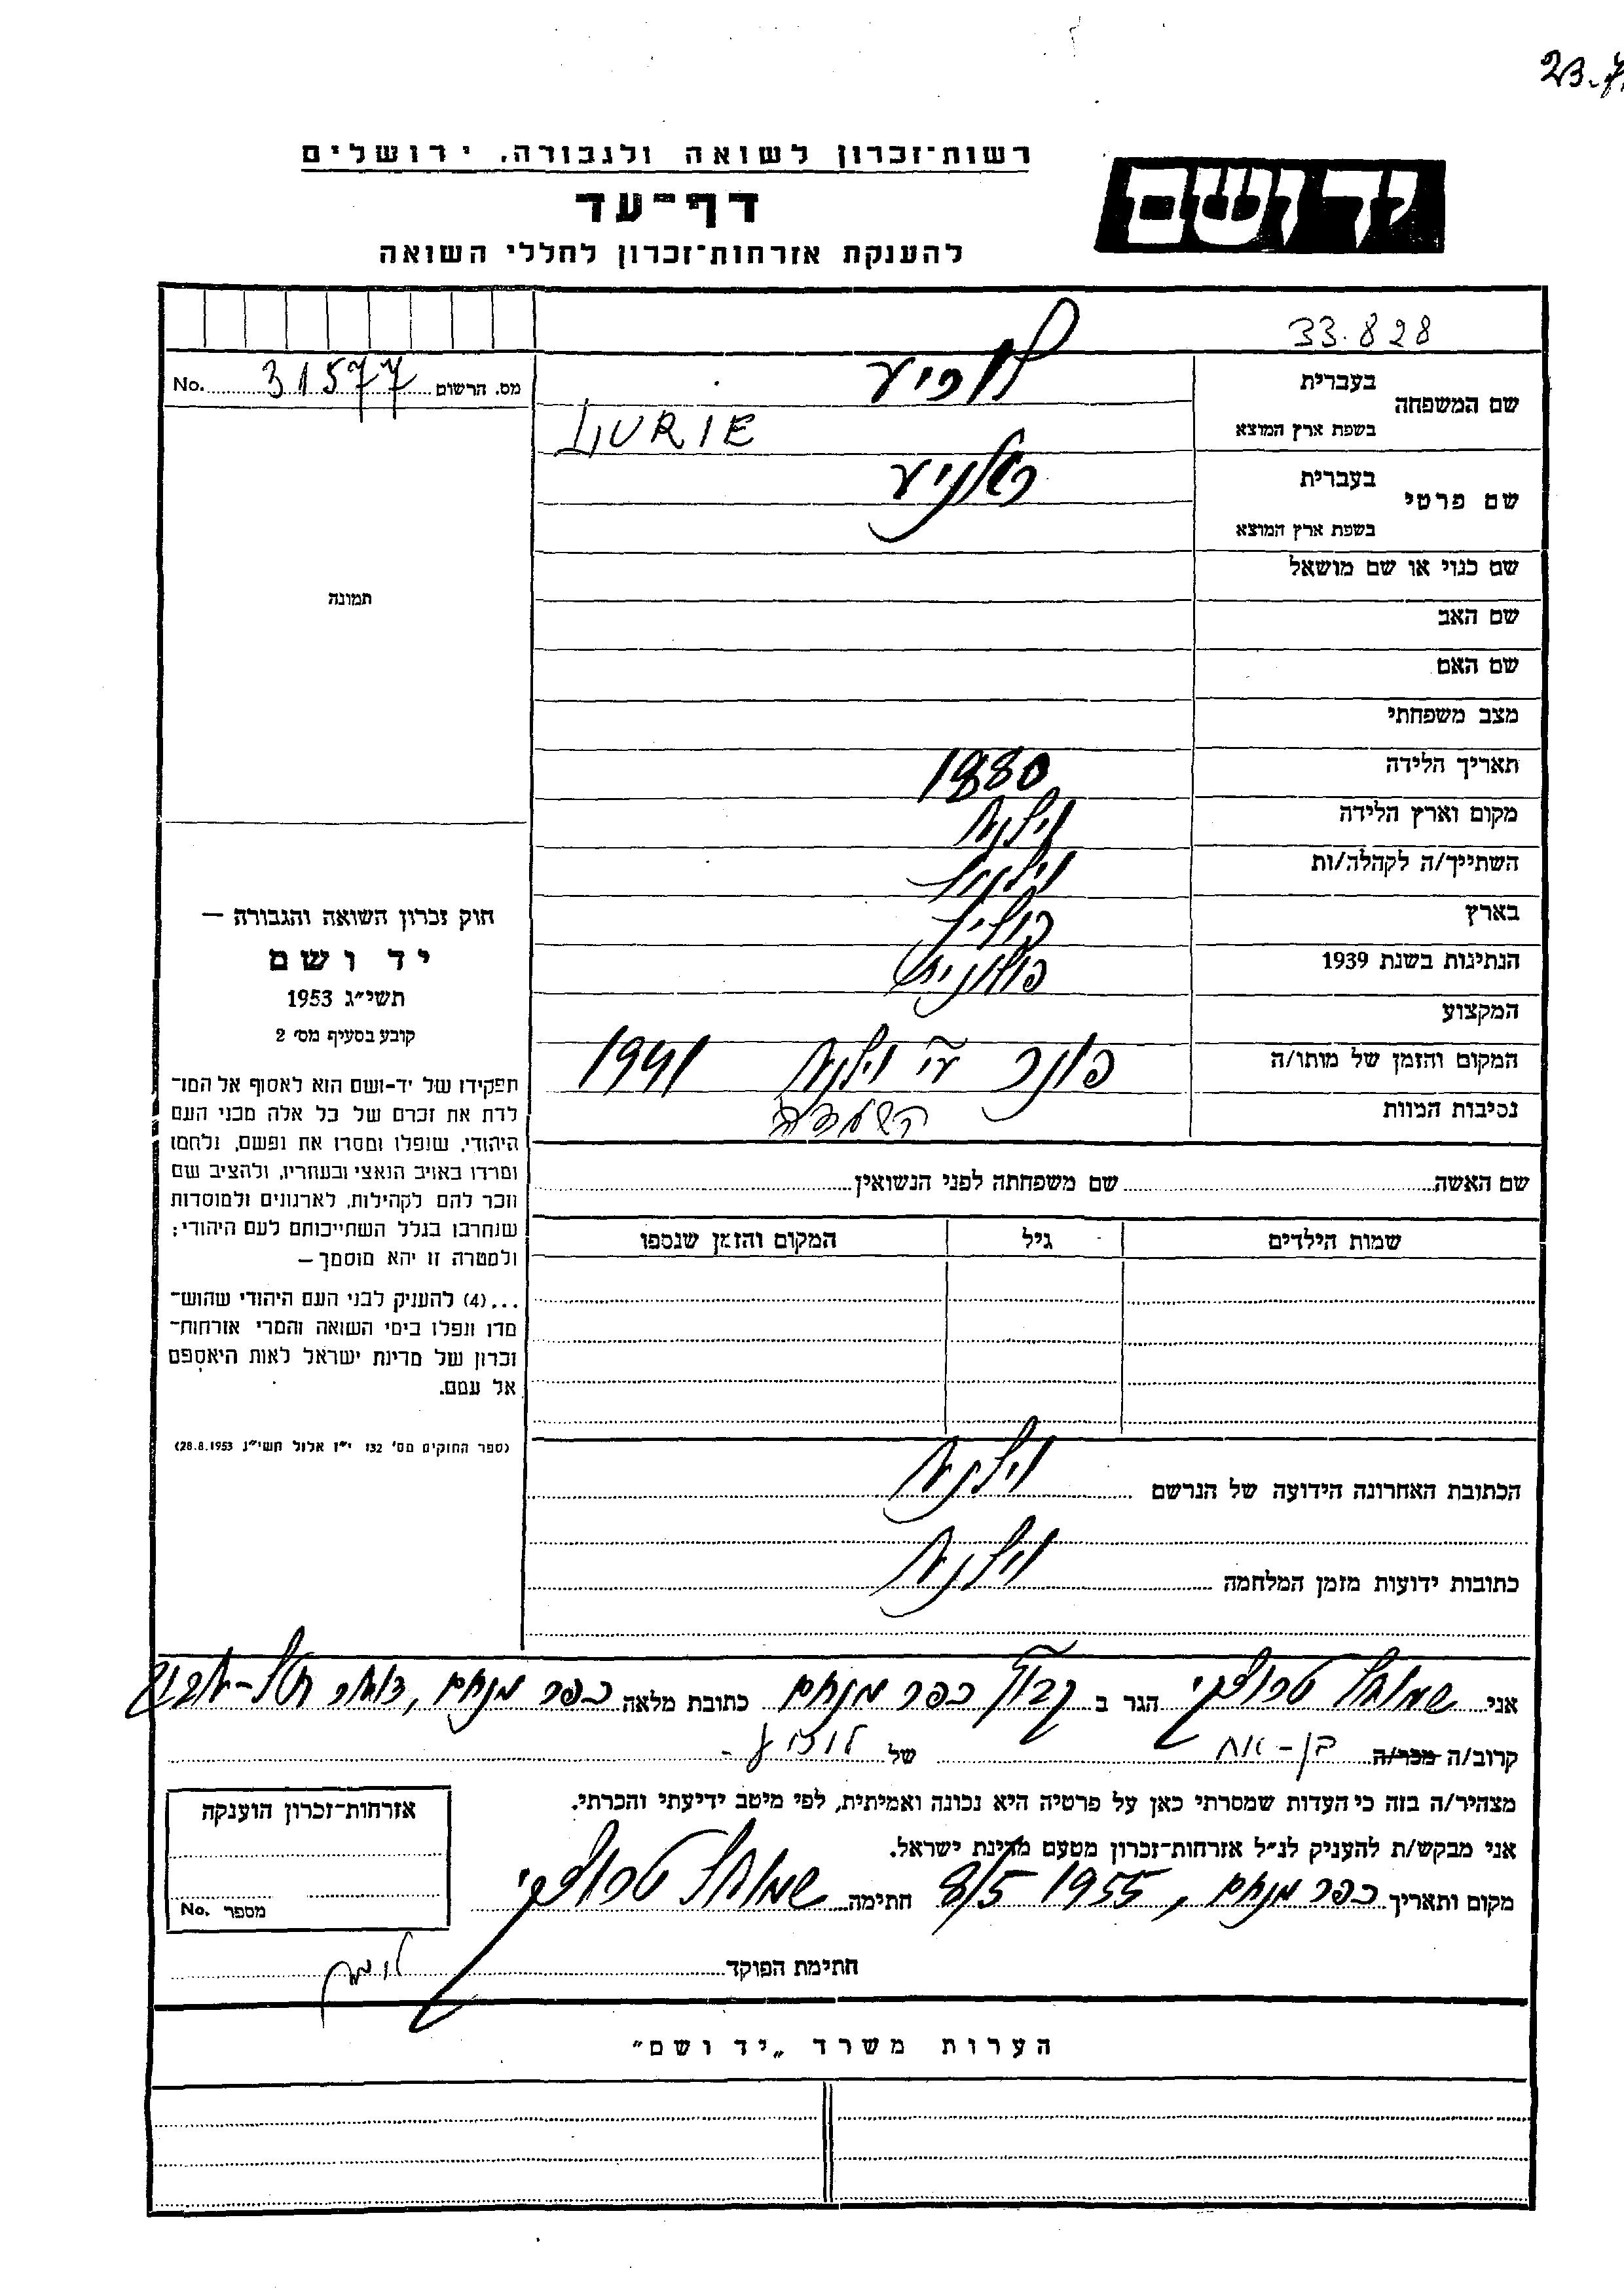 23.7
רשות־זכרון לשואה ולגבורה, ירושלים
יד ושם
דף־עד
להענקת אזרחות־זכרון לחללי השואה
33.828
מס. הרשום 31577 No.
שם המשפחה
בעברית
בשפת ארץ המוצא LURIE
שם פרטי
בעברית
בשפת ארץ המוצא
שם כנוי או שם מושאל
תמונה
שם האב
שם האם
מצב משפחתי
תאריך הלידה 1880
מקום וארץ הלידה וילנא
השתייך/ה לקהלה/ות וילנא
בארץ פולין
הנתינות בשנת 1939 פולונית
המקצוע
המקום והזמן של מותו/ה פונר ע"י וילנא 1941
נסיבות המוות השמדה
חוק זכרון השואה והגבורה —
יד ושם
תשי״ג 1953
קובע בסעיף מס׳ 2
תפקידו של יד-ושם הוא לאסוף אל המו־
לדת את זכרם של כל אלה מבני העם
היהודי, שנפלו ומסרו את נפשם, נלחמו
ומרדו באויב הנאצי ובעוזריו, ולהציב שם
וזכר להם לקהילות, לארגונים ולמוסדות
שנחרבו בגלל השתייכותם לעם היהודי;
ולמטרה זו יהא מוסמך —
...(4) להעניק לבני העם היהודי שהוש־
מדו ונפלו בימי השואה והמרי אזרחות־
זכרון של מדינת ישראל לאות היאספם
אל עמם.
(ספר החוקים מס׳ 132 י״ז אלול תשי״ג 28.8.1953)
שם האשה שם משפחתה לפני הנשואין
שמות הילדים גיל המקום והזמן שנספו
הכתובת האחרונה הידועה של הנרשם וילנא
כתובות ידועות מזמן המלחמה וילנא
אני שמואל הגר ב קבוץ כפר מנחם כתובת מלאה כפר מנחם, דואר
קרוב/ה מכר/ה בן-אח של
מצהיר/ה בזה כי העדות שמסרתי כאן על פרטיה היא נכונה ואמיתית, לפי מיטב ידיעתי והכרתי.
אני מבקש/ת להעניק לנ״ל אזרחות־זכרון מטעם מדינת ישראל.
מקום ותאריך כפר מנחם, 8/5 1955 חתימה שמואל
חתימת הפוקד
אזרחות־זכרון הוענקה
מספר No.
הערות משרד „יד ושם״